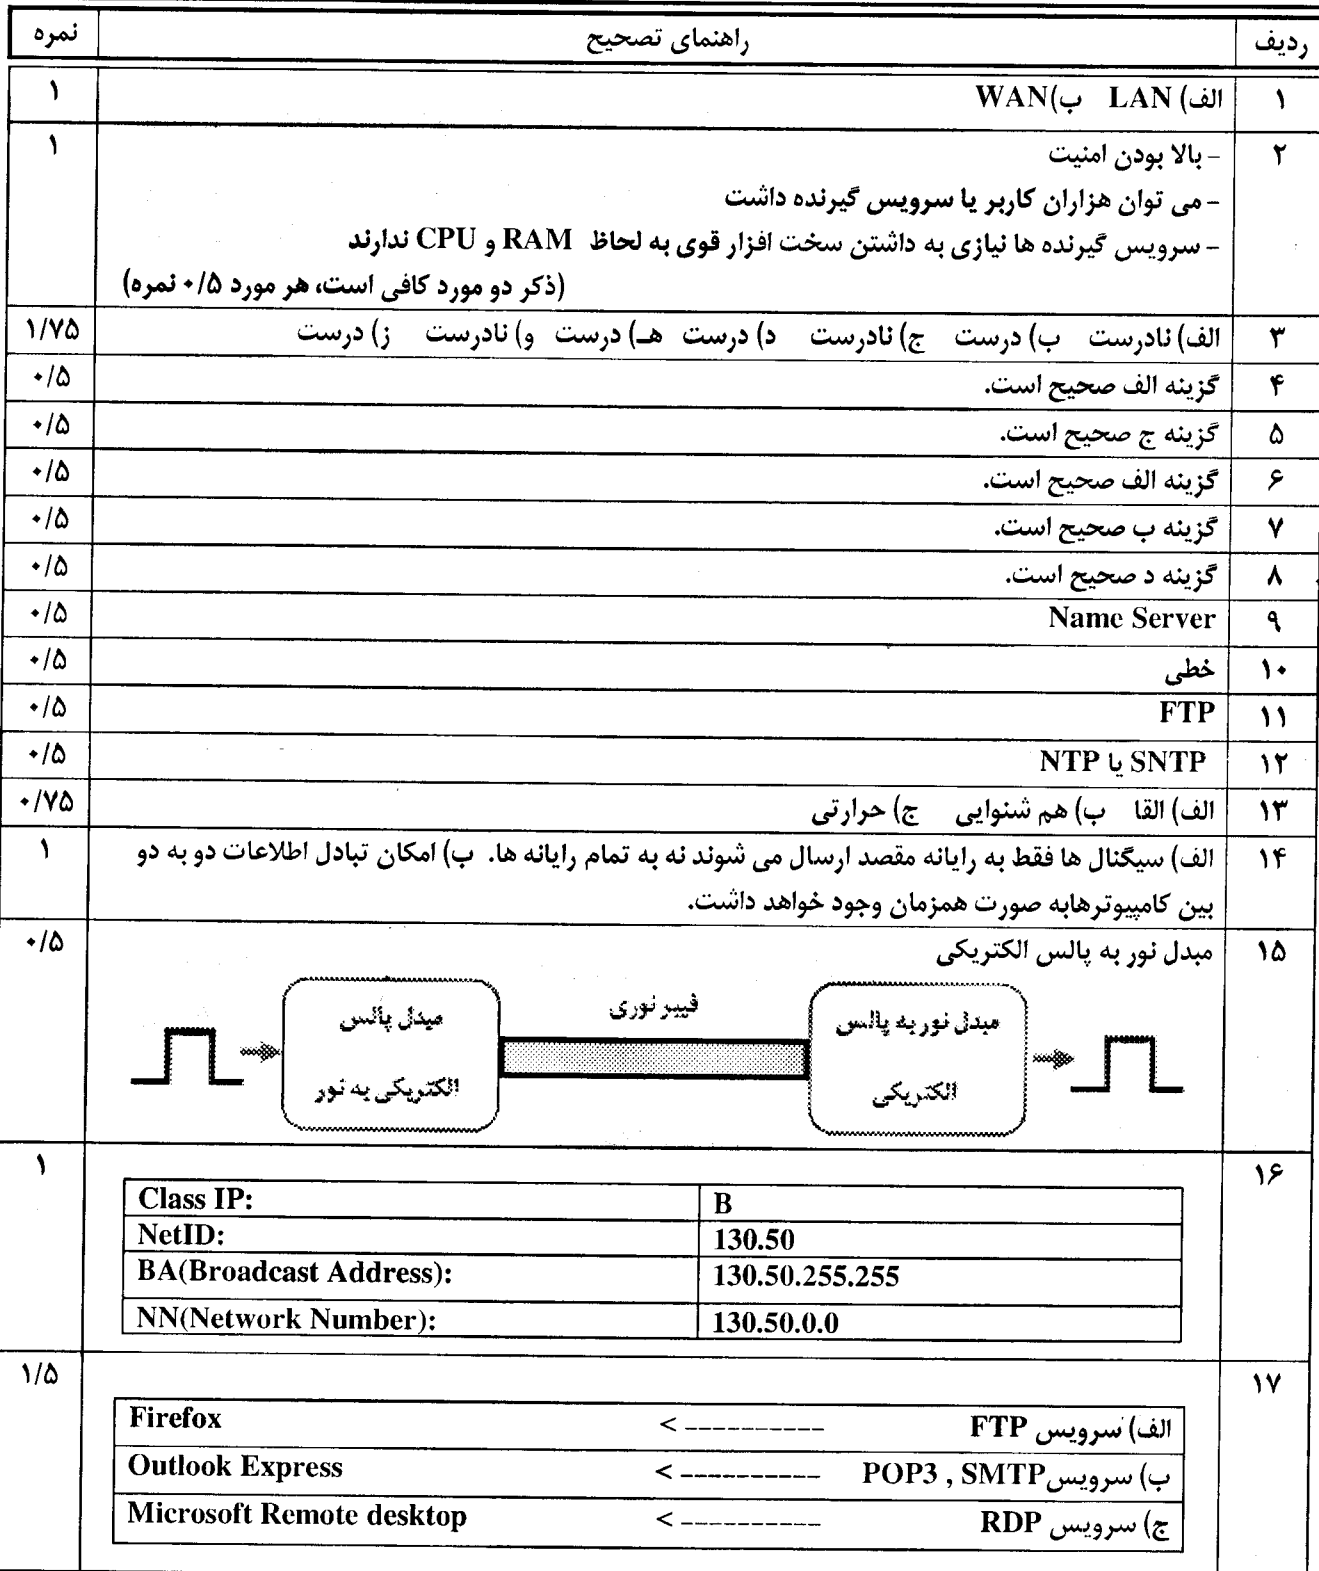 ردیف راهنمای تصحیح نمره
۱ الف) LAN ب)WAN ۱
۲ - بالا بودن امنیت ۱
- می توان هزاران کاربر یا سرویس گیرنده داشت
- سرویس گیرنده ها نیازی به داشتن سخت افزار قوی به لحاظ RAM و CPU ندارند
(ذکر دو مورد کافی است، هر مورد ۰/۵ نمره)
۳ الف) نادرست ب) درست ج) نادرست د) درست هـ) درست و) نادرست ز) درست ۱/۷۵
۴ گزینه الف صحیح است. ۰/۵
۵ گزینه ج صحیح است. ۰/۵
۶ گزینه الف صحیح است. ۰/۵
۷ گزینه ب صحیح است. ۰/۵
۸ گزینه د صحیح است. ۰/۵
۹ Name Server ۰/۵
۱۰ خطی ۰/۵
۱۱ FTP ۰/۵
۱۲ SNTP یا NTP ۰/۵
۱۳ الف) القا ب) هم شنوایی ج) حرارتی ۰/۷۵
۱۴ الف) سیگنال ها فقط به رایانه مقصد ارسال می شوند نه به تمام رایانه ها. ب) امکان تبادل اطلاعات دو به دو ۱
بین کامپیوترهابه صورت همزمان وجود خواهد داشت.
۱۵ مبدل نور به پالس الکتریکی ۰/۵
مبدل نور به پالس
الکتریکی
فیبر نوری
مبدل پالس
الکتریکی به نور
۱۶ ۱
Class IP: B
NetID: 130.50
BA(Broadcast Address): 130.50.255.255
NN(Network Number): 130.50.0.0
۱۷ ۱/۵
الف) سرویس FTP ----------> Firefox
ب) سرویسPOP3 , SMTP ----------> Outlook Express
ج) سرویس RDP ----------> Microsoft Remote desktop